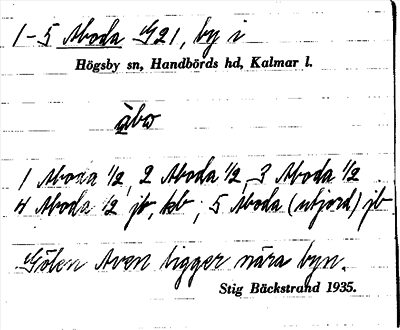 1-5 Aboda G21, by i
Högsby sn, Handbörds hd, Kalmar l.
åbo
1 Aboda 1/2, 2 Aboda 1/2, 3 Aboda 1/2
4 Aboda 1/2 jb, kb; 5 Aboda (utjord) jb
Gölen Aven ligger nära byn.
Stig Bäckstrand 1935.